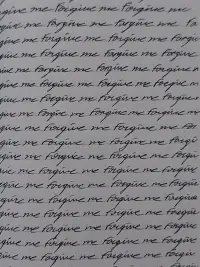 give me Forgive me Forgive me
give me Forgive me Forgive me
give me Forgive me Forgive me
give me Forgive me Forgive me
give me Forgive me Forgive me
give me Forgive me Forgive me
give me Forgive me Forgive
give me Forgive me Forgive
me Forgive me Forgive me
me Forgive me Forgive me
me Forgive me Forgive
ve me Forgive me Forgive
give me Forgive me Forgive
give me Forgive me Forgive
give me Forgive me Forgive
give me Forgive me Forgive
ve me Forgive me Forgive
me Forgive me Forgive me